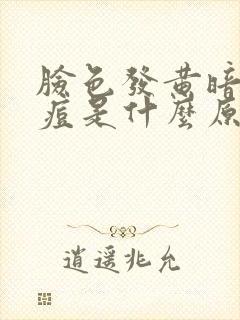 臉色發黃暗
痘是什麼原
逍遙兆允